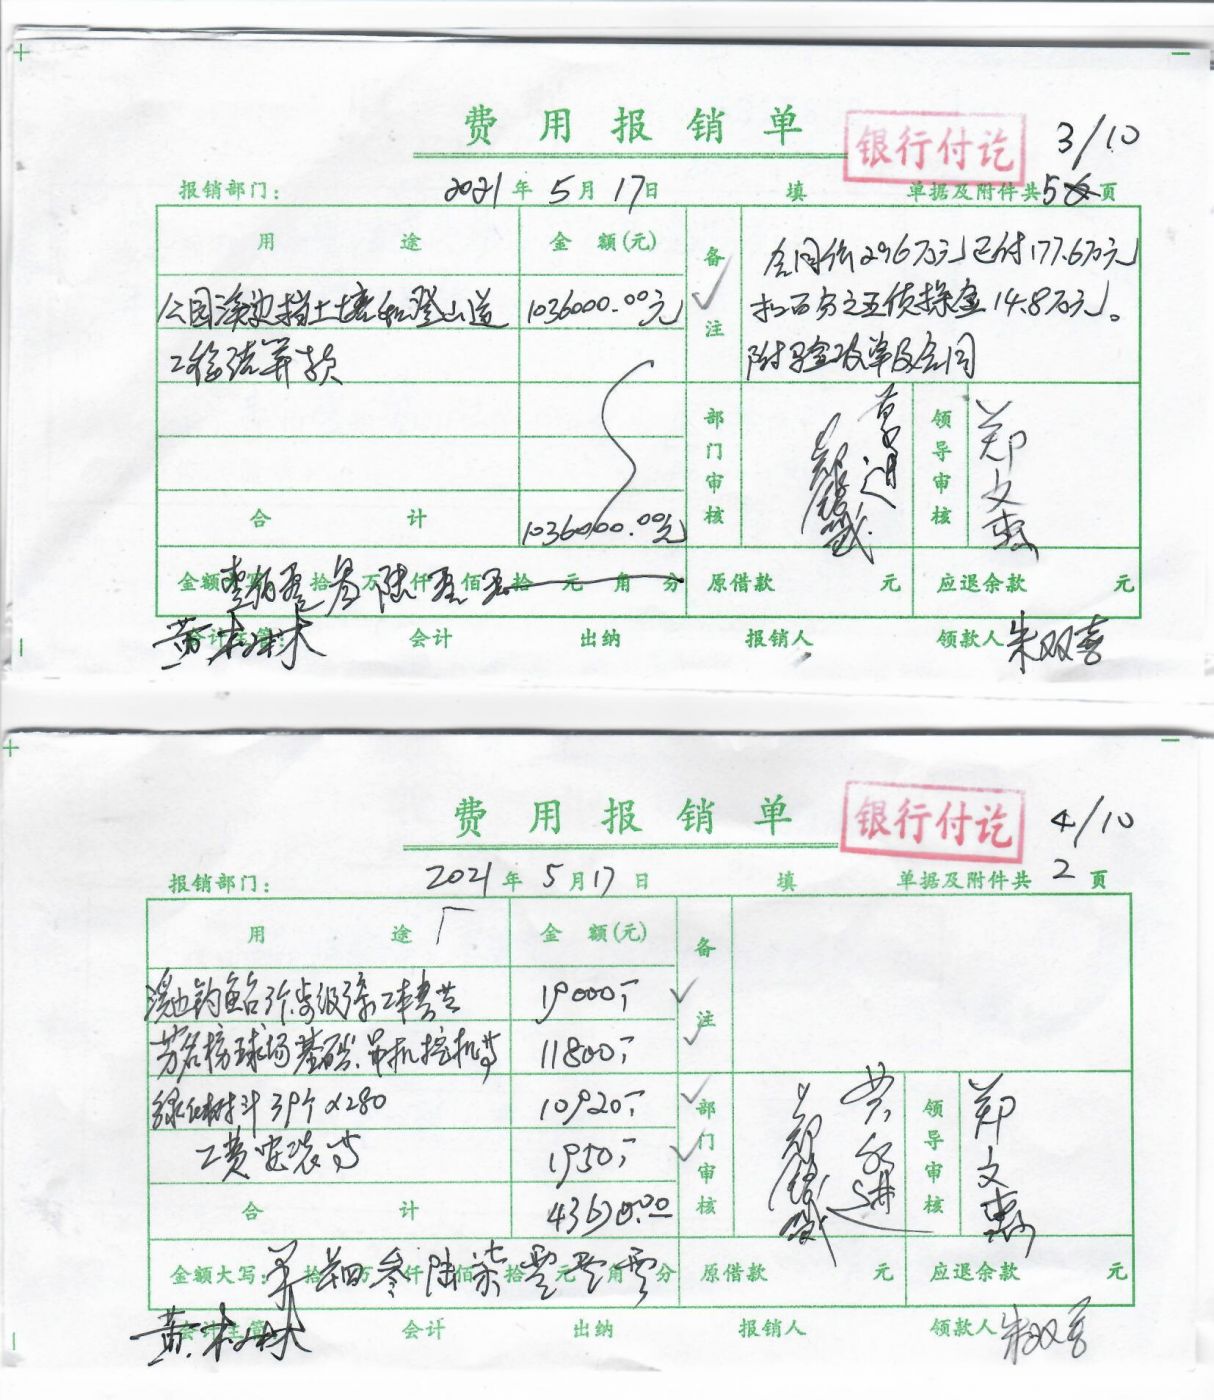 费用报销单
银行付讫
3/10
报销部门： 2021年5月17日 填 单据及附件共5页
用途 金额(元) 备注
合同价296万元已付177.6万元
扣百分之五质保金14.8万元。
附验收单及合同
公园溪边挡土墙和登山道 1036000.00元
工程结算款
部门审核 领导审核 郑文惠
合计 1036000.00元
金额大写： 壹佰零拾叁万陆仟零佰零拾元角分 原借款 元 应退余款 元
会计主管： 黄村林 会计 出纳 报销人 领款人 朱双喜
费用报销单
银行付讫
4/10
报销部门： 2021年5月17日 填 单据及附件共2页
用途 金额(元) 备注
19000.-
芳名榜球场基础.吊机挖机等 11800.-
绿化树斗39个×280 10920.-
工资安装等 1950.-
部门审核 领导审核 郑文惠
合计 43670.00
金额大写： 拾肆万叁仟陆佰柒拾零元零角零分 原借款 元 应退余款 元
会计主管 黄村林 会计 出纳 报销人 领款人 朱双喜